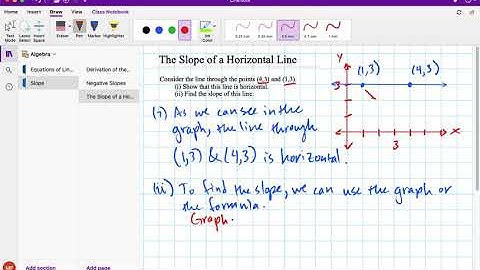 OneNote
Home
Insert
Draw
View
Class Notebook
0.25 mm
0.35 mm
0.5 mm
0.7 mm
1 mm
Algebra
Equations of Lin...
Slope
Derivation of the...
Negative Slopes
The Slope of a Ho...
The Slope of a Horizontal Line
Consider the line through the points (4,3) and (1,3).
(i) Show that this line is horizontal.
(ii) Find the slope of this line.
(i) As we can see in the
graph, the line through
(1,3) & (4,3) is horizontal.
(ii) To find the slope, we can use the graph or
the formula.
Graph.
Y
(1,3)
(4,3)
3
X
3
Add section
Add page